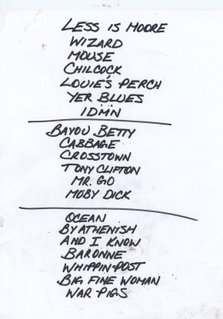 LESS IS MOORE
WIZARD
MOUSE
CHILCOCK
LOUIE'S PERCH
YER BLUES
IDMN
BAYOU BETTY
CABBAGE
CROSSTOWN
TONY CLIFTON
MR. GO
MOBY DICK
OCEAN
BY ATHENISH
AND I KNOW
BARONNE
WHIPPIN POST
BIG FINE WOMAN
WAR PIGS